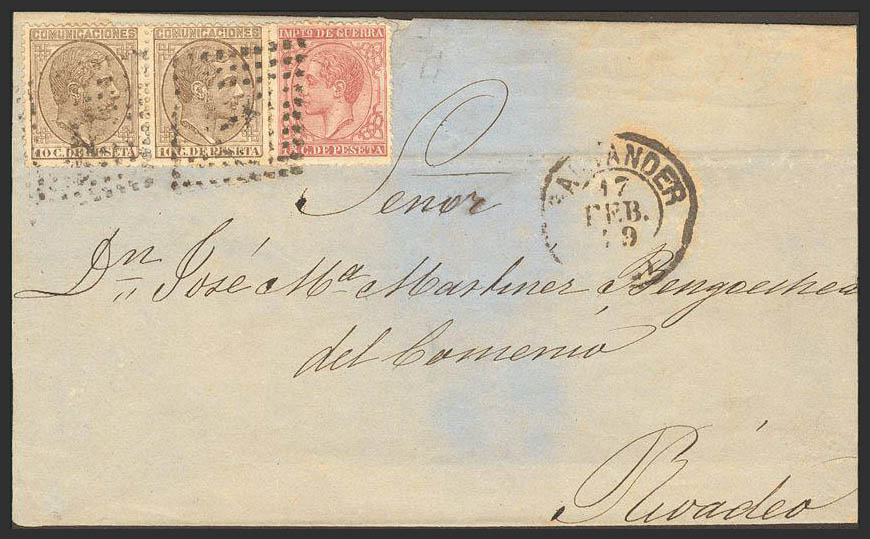 COMUNICACIONES COMUNICACIONES IMPTO DE GUERRA
10 C. DE PESETA 10 C. DE PESETA C. DE PESETA
SANTANDER
17
FEB.
79
Señor
Dn José Ma Martinez Bengoechea
del Comercio
Rivadeo